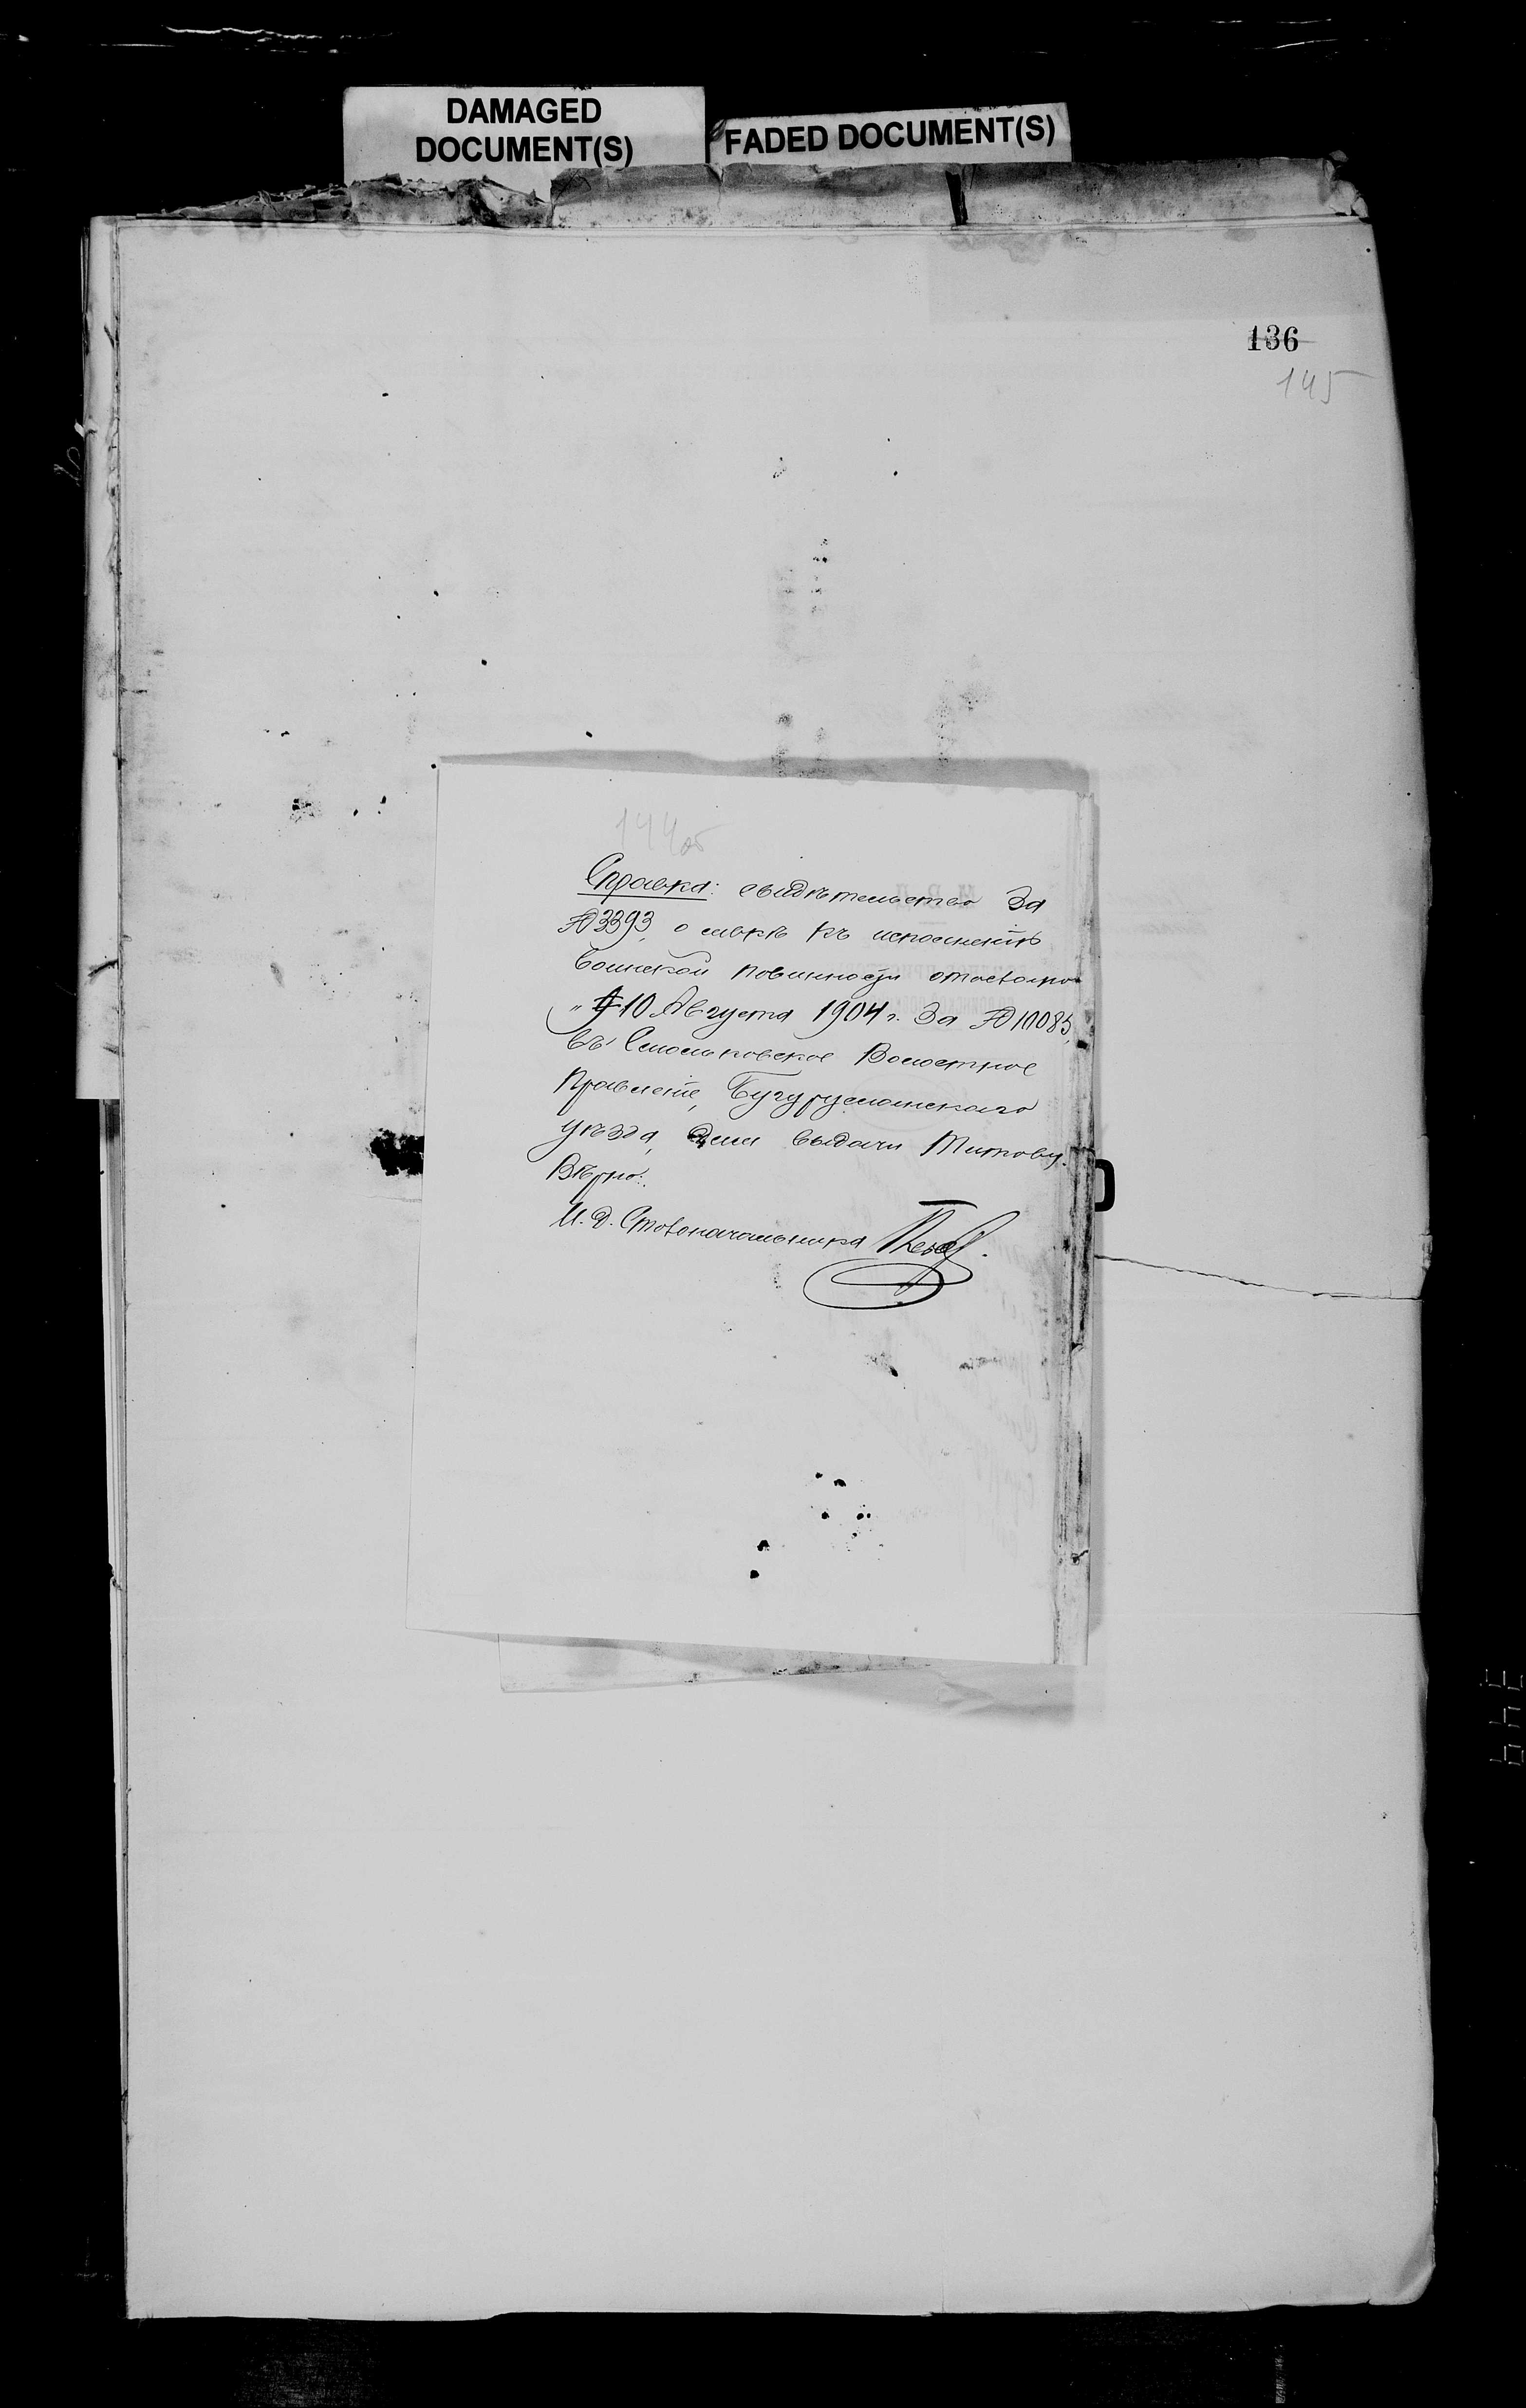 DAMAGED
DOCUMENT(S)
FADED DOCUMENT(S)
136
145
144об
Справка: свидѣтельство за
№ 3393, о явкѣ къ исполненію
воинской повинности отослано
" 10 Августа 1904 г. За № 10085,
въ Смольковское Волостное
Правленіе, Бугурусланскаго
уѣзда, для выдачи Титову.
Вѣрно:
И. д. Столоначальника